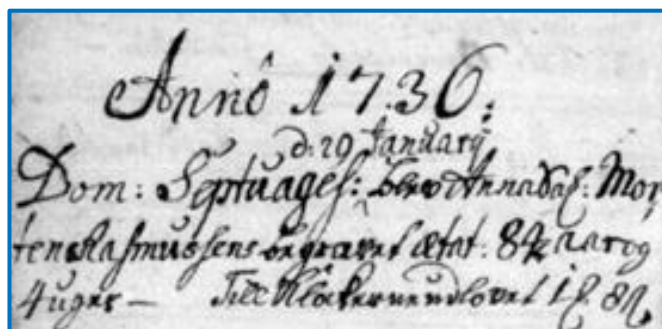 Anno 1736:
d: 29 January
Dom: Septuages: blev Anna Sal: Mor
tens Rasmussens begravet ætat: 84 aar og
4 uger — Till Klokkerne udlovet 1